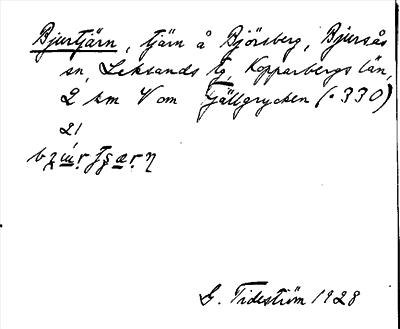 Bjurtjärn, tjärn å Björsberg, Bjursås
sn, Leksands tg, Kopparbergs län,
2 km V om Gällgrycken (·330)
21
G. Tideström 1928